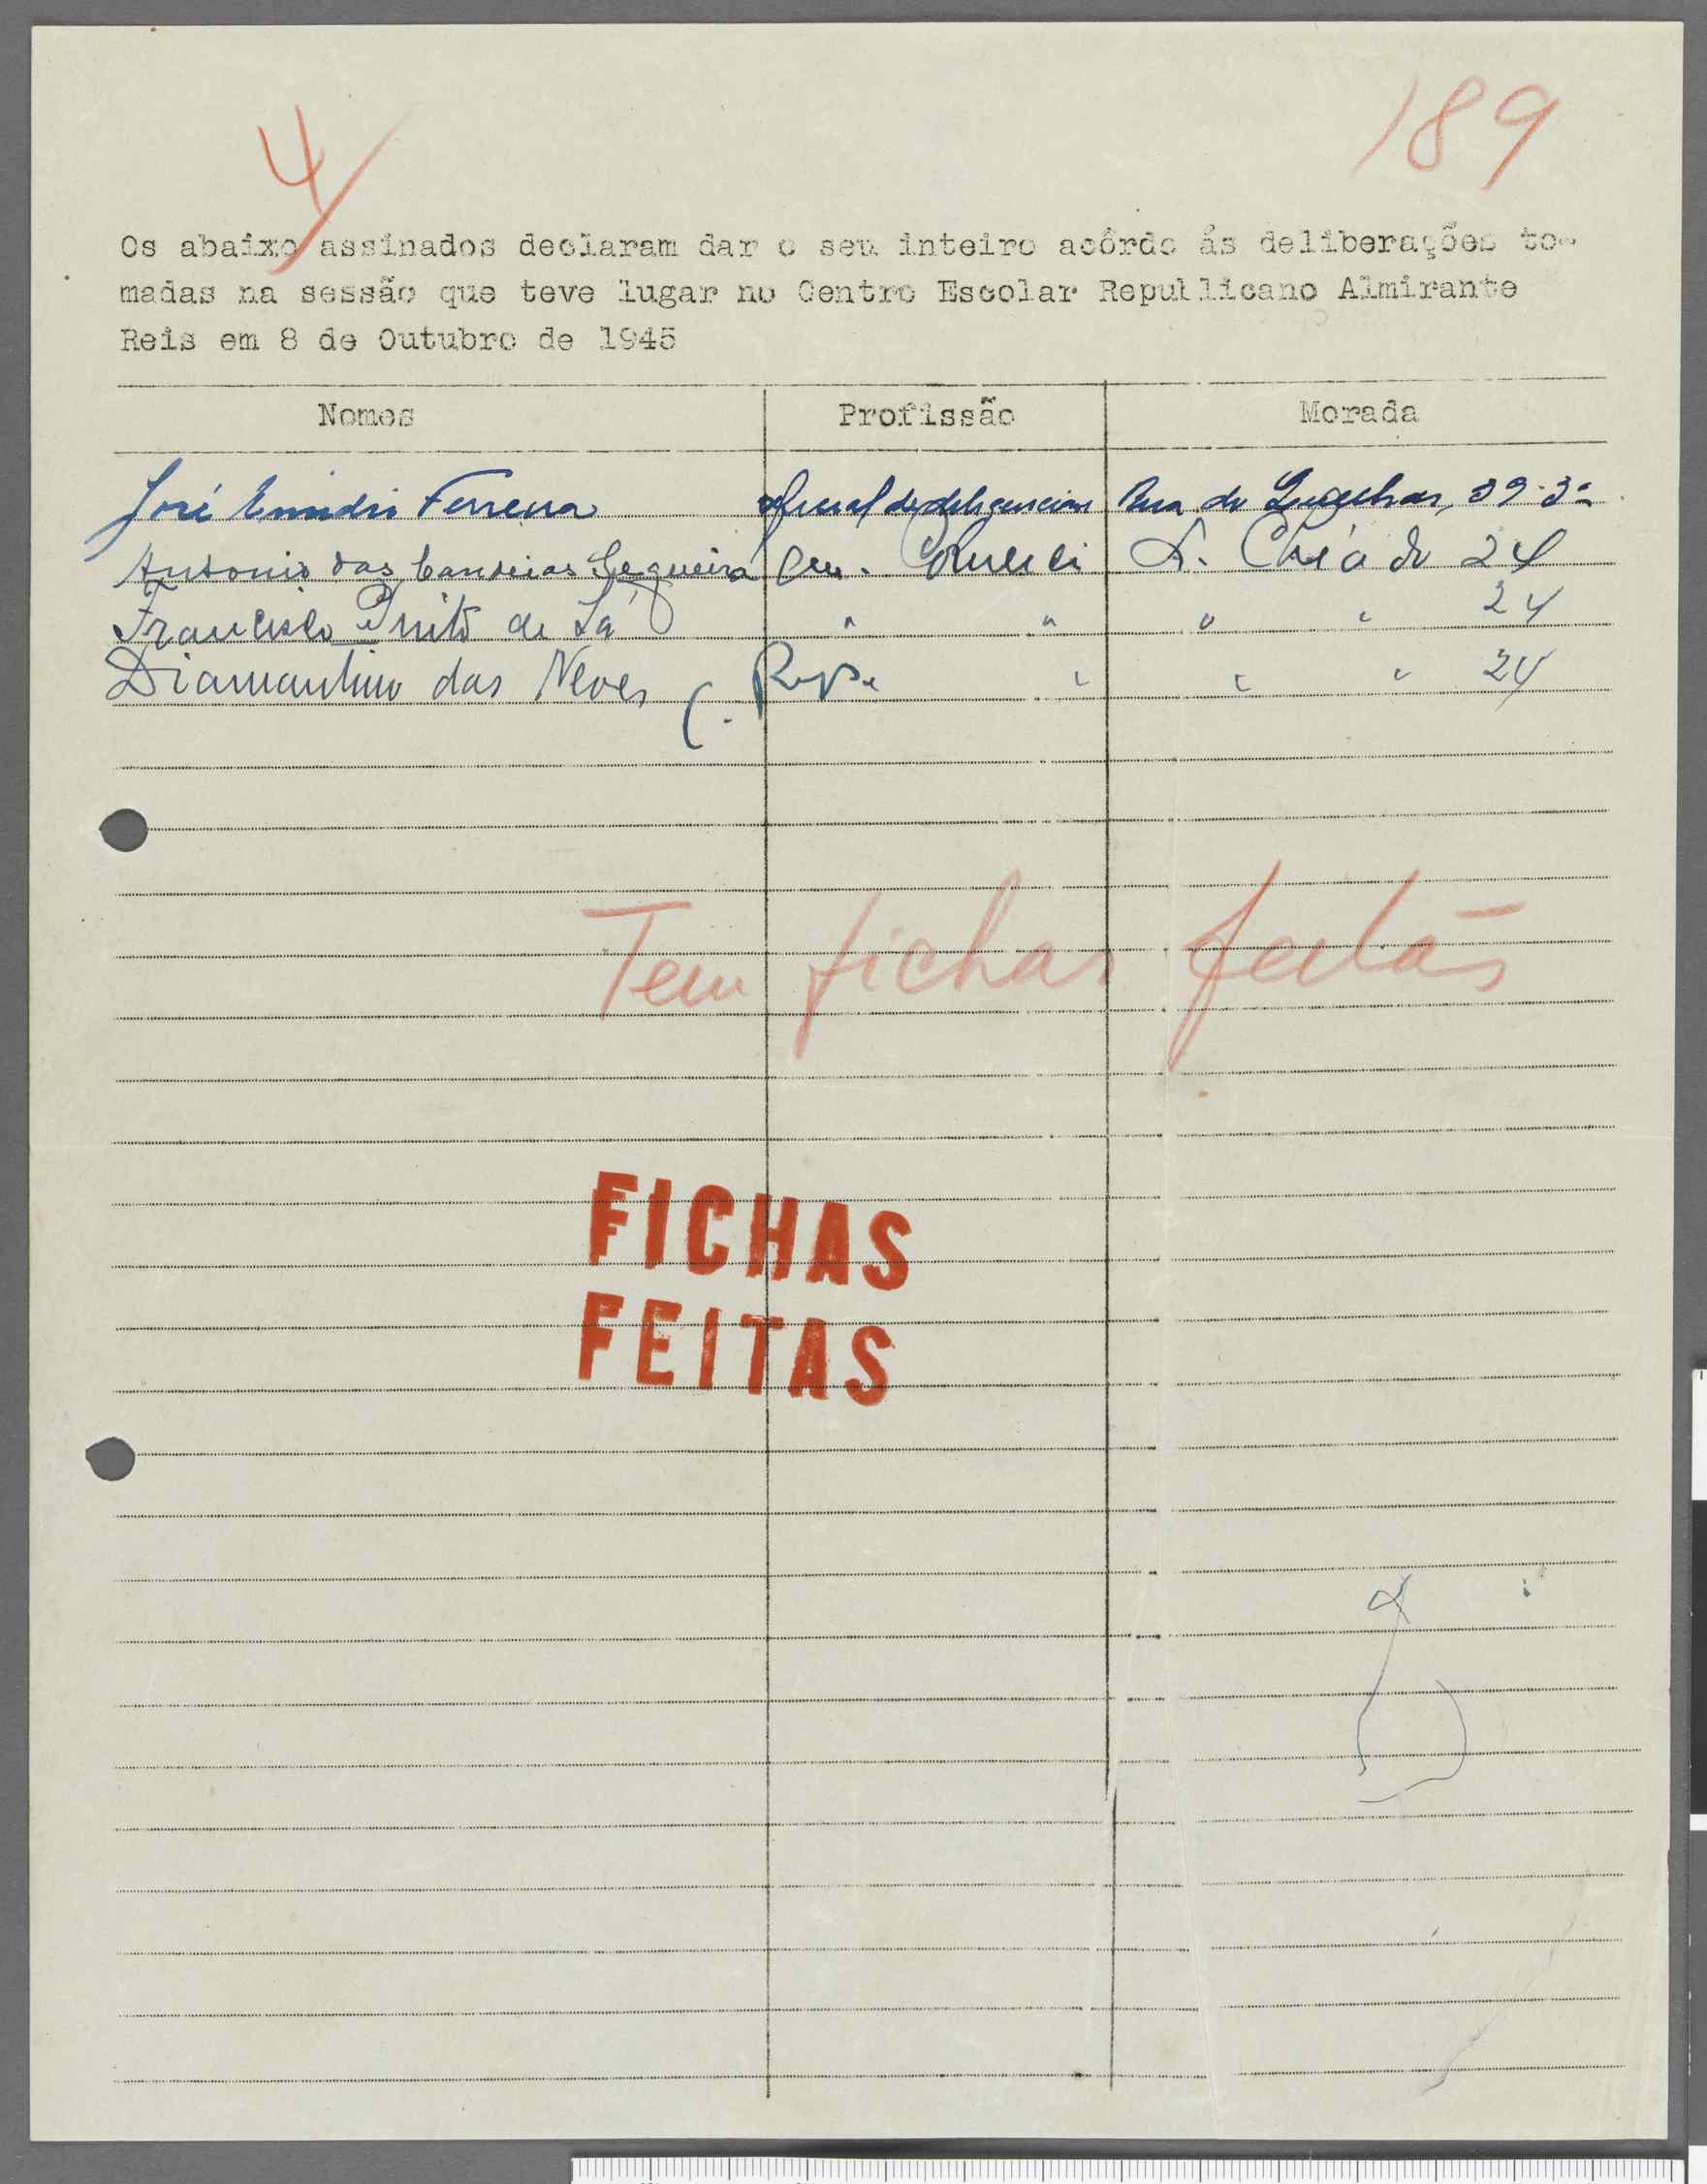 4/
189
Os abaixo assinados declaram dar o seu inteiro acôrdo ás deliberações to-
madas na sessão que teve lugar no Centro Escolar Republicano Almirante
Reis em 8 de Outubro de 1945
Nomes Profissão Morada
José Emidio Ferreira oficial de deligencias Rua do 39-3º
Antonio das Sequeira Em. Comerci R. Chiado 24
Francisco Pinto de Sá " " " " 24
Diamantino das Neves " " " 24
Tem fichas feitas
FICHAS
FEITAS